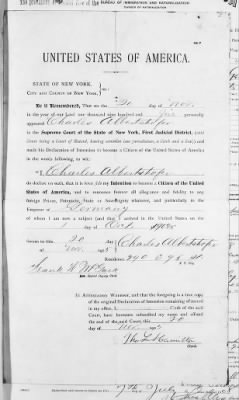 BUREAU OF IMMIGRATION AND NATURALIZATION
DIVISION OF NATURALIZATION
UNITED STATES OF AMERICA.
STATE OF NEW YORK,
CITY AND COUNTY OF NEW YORK,
Be it Remembered, That on the 20 day of Nov.
in the year of our Lord one thousand nine hundred and five personally
appeared Charles Albertshofer
in the Supreme Court of the State of New York, First Judicial District, (said
Court being a Court of Record, having common law jurisdiction, a Clerk and a Seal,) and
made his Declaration of Intention to become a Citizen of the United States of America
in the words following, to wit:
I, Charles Albertshofer
do declare on oath, that it is bona fide my Intention to become a Citizen of the United
States of America, and to renounce forever all allegiance and fidelity to any
foreign Prince, Potentate, State or Sovereignty whatever, and particularly to
the Emperor of Germany
of whom I am now a subject (and that I arrived in the United States on the
1 day of Oct.
Sworn this 20
day of Nov. 1905
Charles Albertshofer
Residence 240 E
In Attestation Whereof, and that the foregoing is a true copy
of the original Declaration of Intention remaining of record
in my office, I, Clerk of the said
Court, have hereunto subscribed my name and affixed
the seal of the said Court, this 20
day of Nov. 1905
Hamilton
7th July